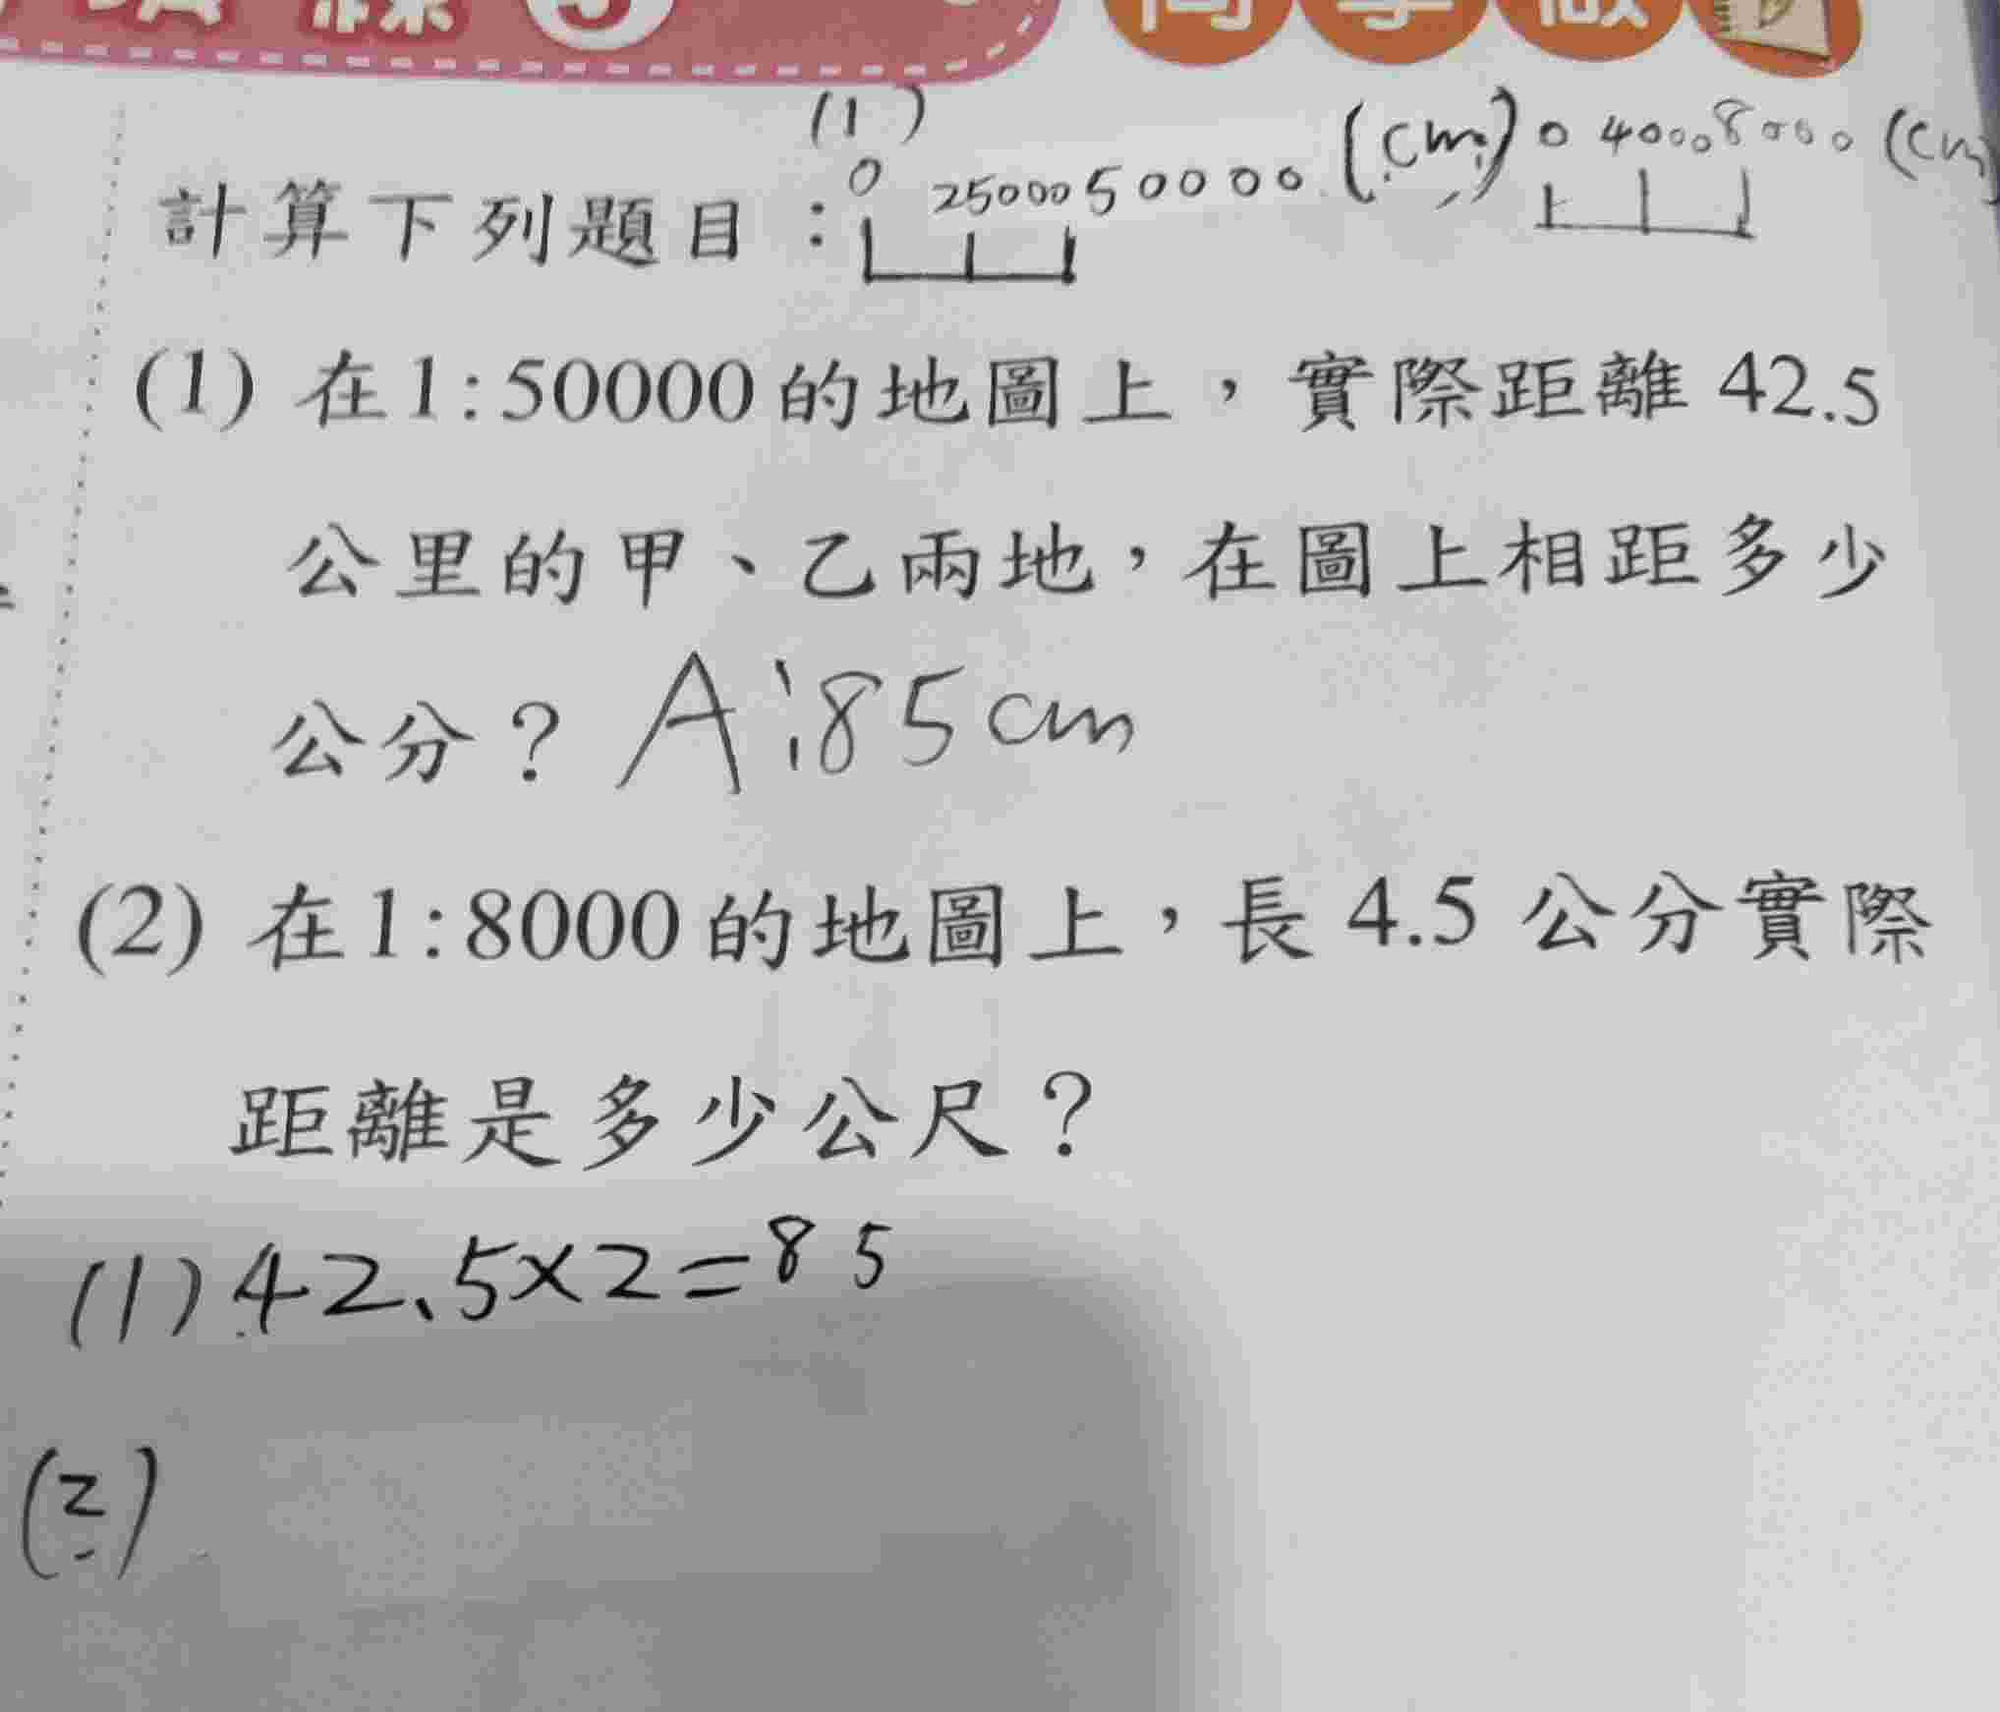 (1)
0 25000 50000 (cm) 0 4000 8000 (cm
計算下列題目：
(1) 在1:50000的地圖上，實際距離 42.5
公里的甲、乙兩地，在圖上相距多少
公分？ A:85cm
(2) 在1:8000的地圖上，長 4.5 公分實際
距離是多少公尺？
(1) 42.5×2=85
(2)